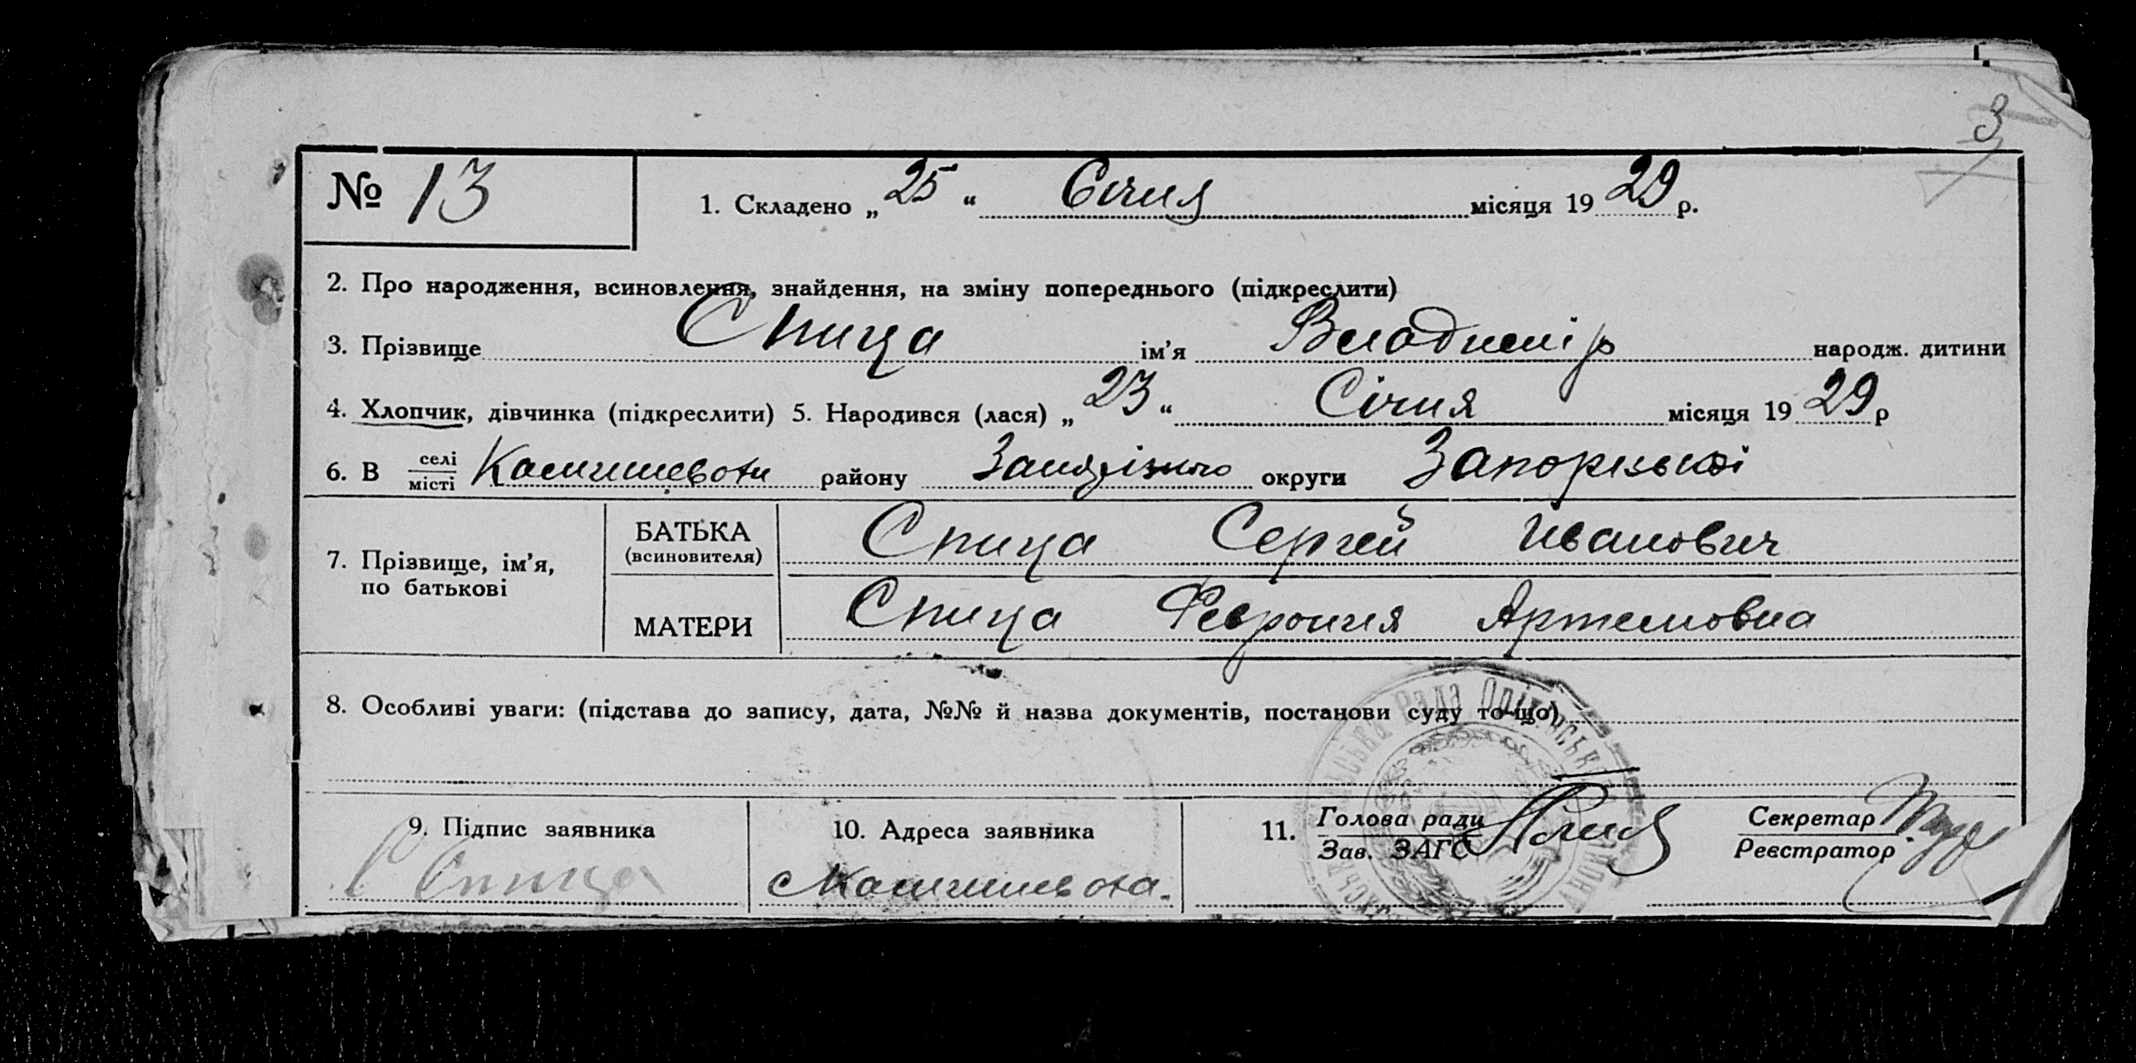 3
№ 13 1. Складено „ 25 “ Січня місяця 19 29 р.
2. Про народження, всиновлення, знайдення, на зміну попереднього (підкреслити)
3. Прізвище Спица ім’я Владимір народж. дитини
4. Хлопчик, дівчинка (підкреслити) 5. Народився (лася) „ 23 “ Січня місяця 19 29 р
6. В селі
місті Камишевоти району округи Запорізької
7. Прізвище, ім’я,
по батькові
БАТЬКА
(всиновителя)
Спица Сергей Иванович
МАТЕРИ Спица Феврония Артемовна
8. Особливі уваги: (підстава до запису, дата, №№ й назва документів, постанови суду то-що)
9. Підпис заявника
С Спица
10. Адреса заявника
Камишевота.
11. Голова ради
Зав. ЗАГС
Секретар
Реєстратор
Рада Оріхівськ